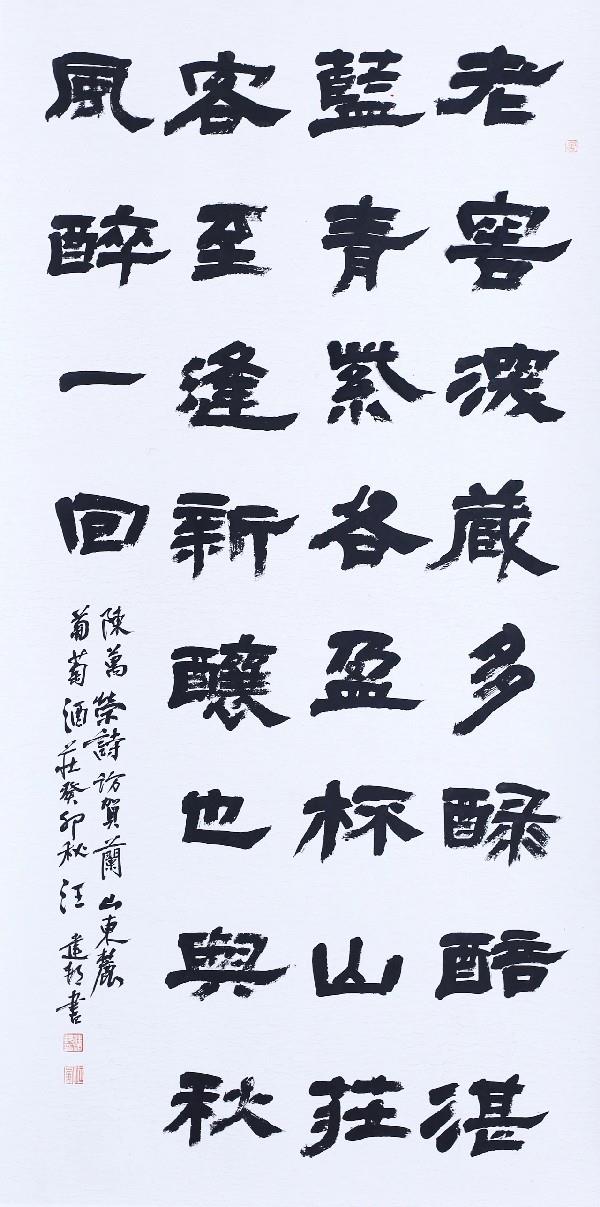 老窖深藏多醁醅湛
藍青紫各盈杯山莊
客至逢新釀也與秋
風醉一回
陳萬榮詩訪賀蘭山東麓
葡萄酒莊癸卯秋汪書